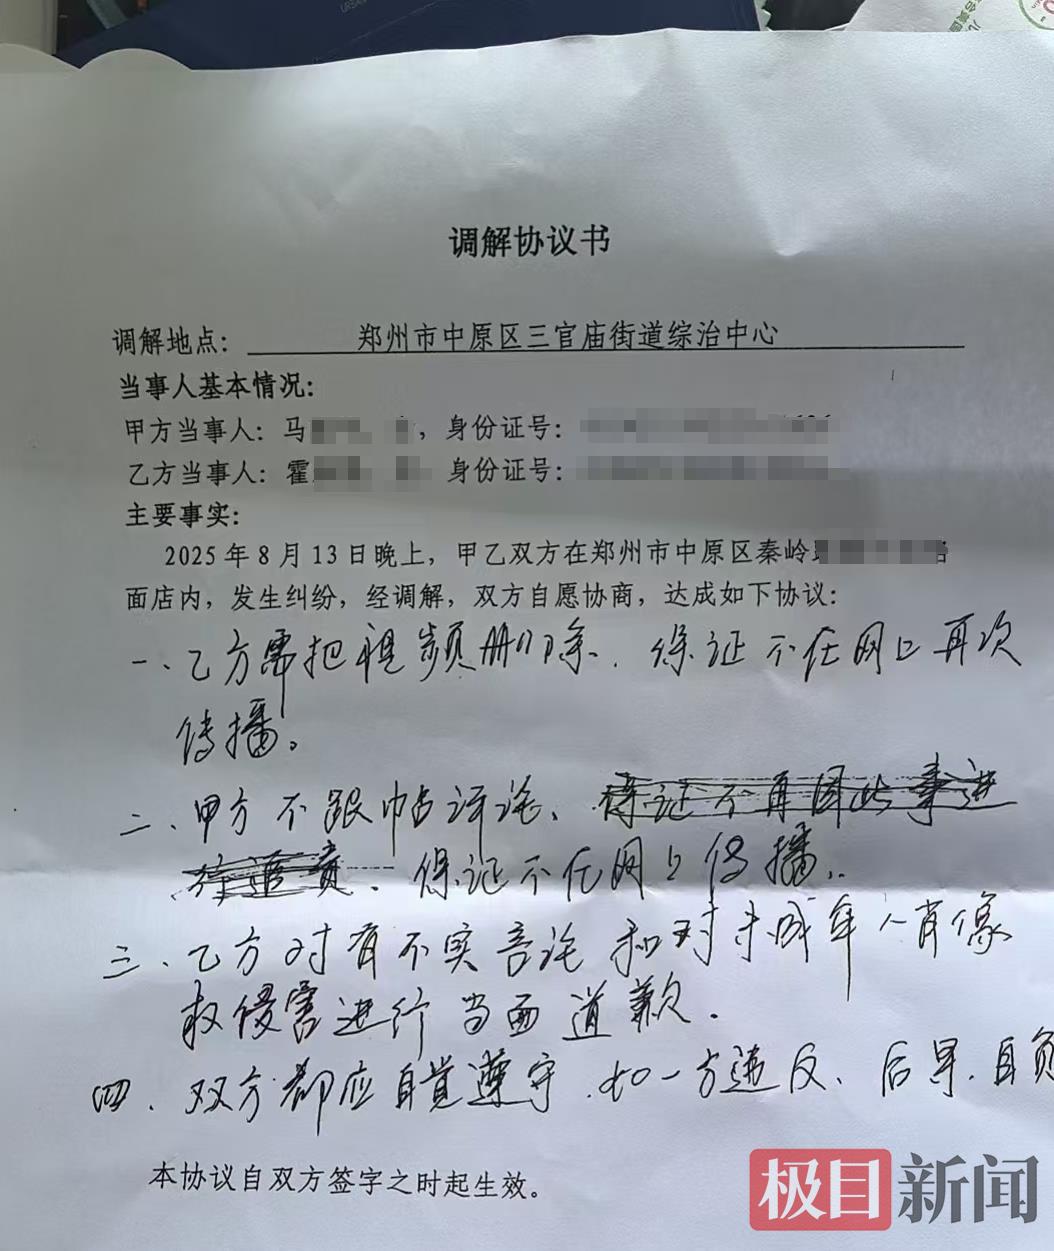 调解协议书
调解地点： 郑州市中原区三官庙街道综治中心
当事人基本情况：
甲方当事人：马 ，身份证号：
乙方当事人：霍 ，身份证号：
主要事实：
2025年8月13日晚上，甲乙双方在郑州市中原区秦岭
面店内，发生纠纷，经调解，双方自愿协商，达成如下协议：
一、乙方需把视频删除、保证不在网上再次
传播。
二、甲方不跟帖评论、保证不再因此事进
行追责、保证不在网上传播。
三、乙方对有不实言论和对未成年人肖像
权侵害进行当面道歉。
四、双方都应自觉遵守、如一方违反、后果自负
本协议自双方签字之时起生效。
极目新闻